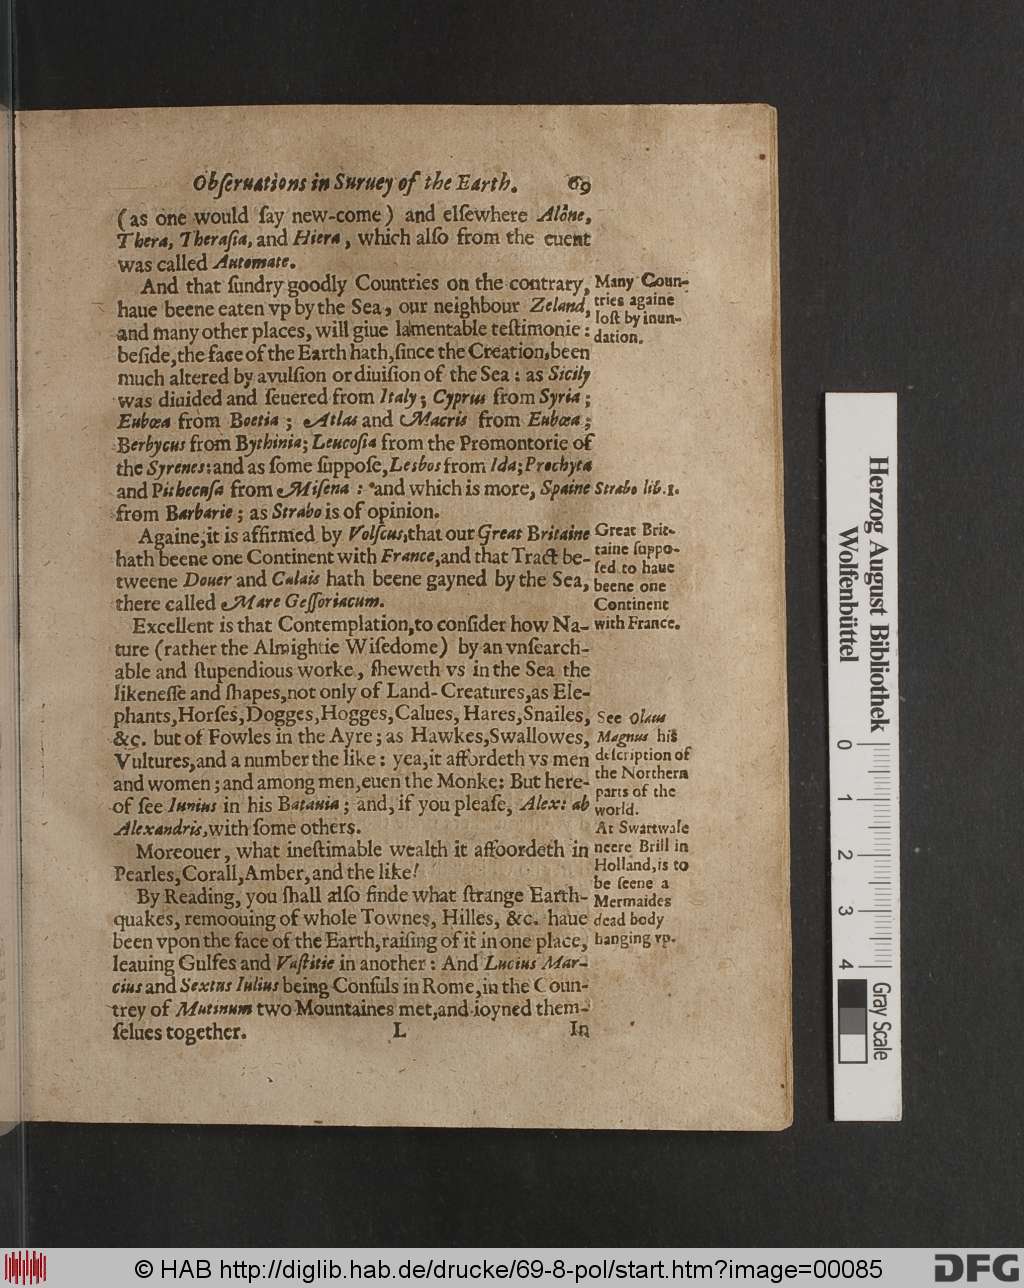 Obſeruations in Suruey of the Earth. 69
(as one would ſay new-come) and elſewhere Alône,
Thera, Theraſia, and Hiera, which alſo from the euent
was called Automate.
And that ſundry goodly Countries on the contrary,
haue beene eaten vp by the Sea, our neighbour Zeland,
and many other places, will giue lamentable teſtimonie:
beſide, the face of the Earth hath, ſince the Creation, been
much altered by avulſion or diuiſion of the Sea: as Sicily
was diuided and ſeuered from Italy; Cyprus from Syria;
Eubœa from Boetia; Atlas and Macris from Eubœa;
Berbycus from Bythinia; Leucoſia from the Promontorie of
the Syrenes: and as ſome ſuppoſe, Lesbos from Ida; Prochyta
and Pithecuſa from Miſena: and which is more, Spaine
from Barbarie; as Strabo is of opinion.
Againe, it is affirmed by Volſcus, that our Great Britaine
hath beene one Continent with France, and that Tract be-
tweene Douer and Calais hath beene gayned by the Sea,
there called Mare Geſſoriacum.
Excellent is that Contemplation, to conſider how Na-
ture (rather the Almightie Wiſedome) by an vnſearch-
able and ſtupendious worke, ſheweth vs in the Sea the
likeneſſe and ſhapes, not only of Land-Creatures, as Ele-
phants, Horſes, Dogges, Hogges, Calues, Hares, Snailes,
&c. but of Fowles in the Ayre; as Hawkes, Swallowes,
Vultures, and a number the like: yea, it affordeth vs men
and women; and among men, euen the Monke: But here-
of ſee Iunius in his Batauia; and, if you pleaſe, Alex: ab
Alexandris, with ſome others.
Moreouer, what ineſtimable wealth it affoordeth in
Pearles, Corall, Amber, and the like!
By Reading, you ſhall alſo finde what ſtrange Earth-
quakes, remoouing of whole Townes, Hilles, &c. haue
been vpon the face of the Earth, raiſing of it in one place,
leauing Gulfes and Vaſtitie in another: And Lucius Mar-
cius and Sextus Iulius being Conſuls in Rome, in the Coun-
trey of Mutinum two Mountaines met, and ioyned them-
ſelues together. L In
Many Coun-
tries againe
loſt by inun-
dation.
Strabo lib. 1.
Great Brit-
taine ſuppo-
ſed to haue
beene one
Continent
with France.
See Olaus
Magnus his
deſcription of
the Northern
parts of the
world.
At Swartwale
neere Brill in
Holland, is to
be ſeene a
Mermaides
dead body
hanging vp.
Herzog August Bibliothek
Wolfenbüttel
0 1 2 3 4
Gray Scale
© HAB http://diglib.hab.de/drucke/69-8-pol/start.htm?image=00085
DFG